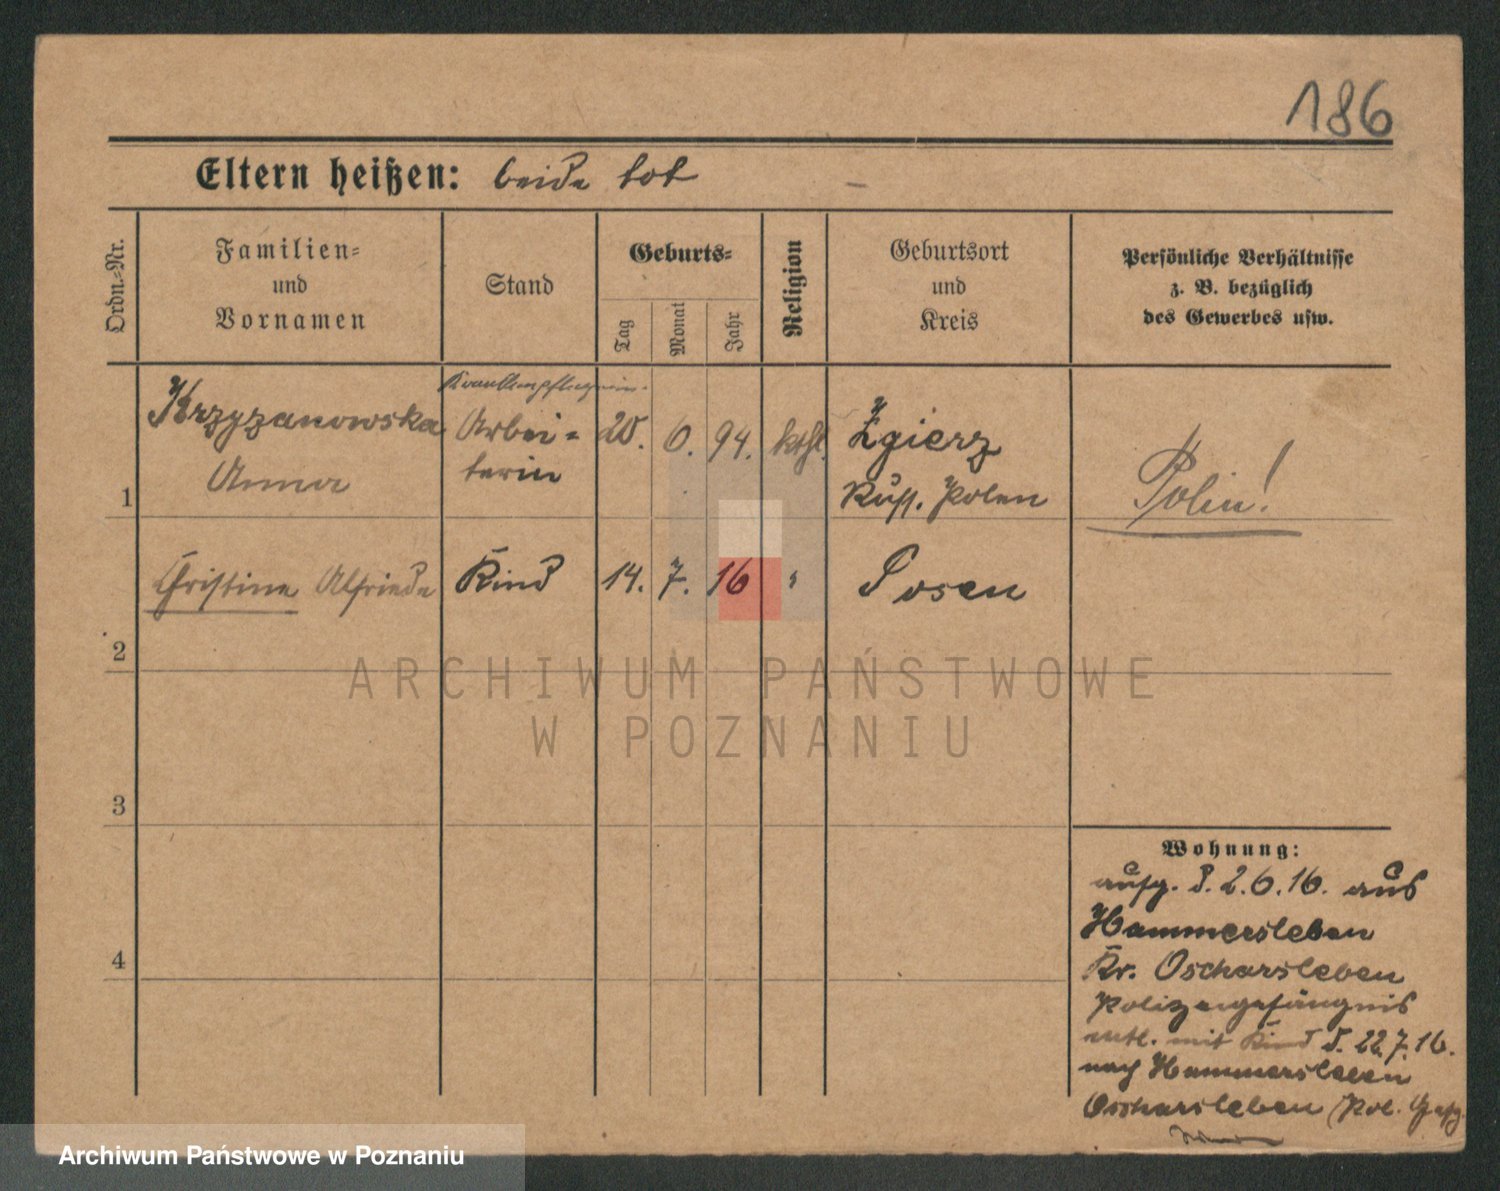 186
Eltern heißen: beide tot
Ordn.-Nr.
Familien-
und
Vornamen
Stand
Geburts-
Tag
Monat
Jahr
Religion
Geburtsort
und
Kreis
Persönliche Verhältnisse
z. B. bezüglich
des Gewerbes usw.
Krankenpflegerin.
Krzyzanowska Arbei- 20. 6. 94. kthl. Zgierz
1 Anna terin Russ. Polen Polin!
Christine Alfriede Kind 14. 7. 16 " Posen
2
ARCHIWUM PAŃSTWOWE
W POZNANIU
3
Wohnung:
aufg. d. 2.6.16. aus
Hammersleben
Kr. Oscharsleben
4
Polizeigefängnis
entl. mit Kind d. 22.7.16.
nach Hammersleben
Oscharsleben (Pol. Gefg.
Archiwum Państwowe w Poznaniu